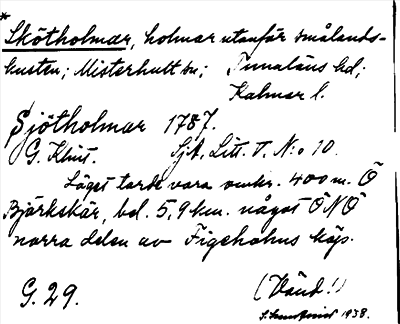 * Skötholmar, holmar utanför smålands-
kusten; Misterhult sn; Tunaläns hd;
Kalmar l.
Sjötholmar 1787.
G. Klint. Sjk. Litt. T. N:o 10.
Läget torde vara omkr. 400 m. Ö
Björkskär, bel. 5,9 km. något ÖNÖ
norra delen av Figeholms köp.
G. 29. (Vänd!)
1938.